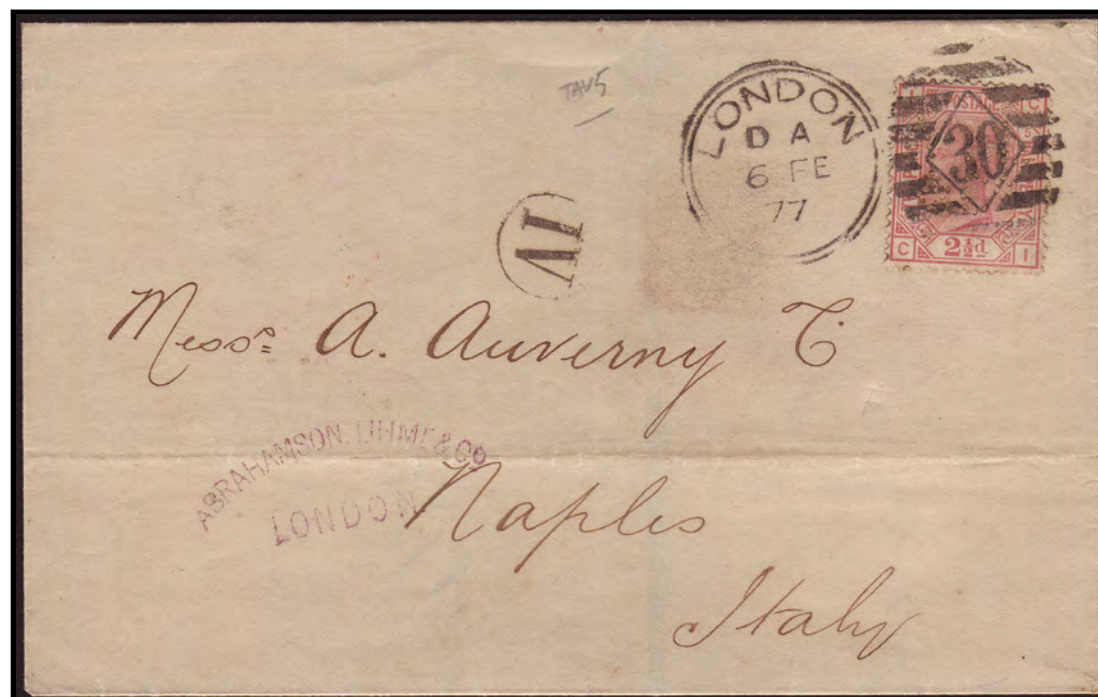 LONDON
D A
6 FE
77
POSTAGE
30
C
2½d
I
IV
Mess<sup>rs</sup> A. Auverny C
ABRAHAMSON, UHME & CO
LONDON
Naples
Italy